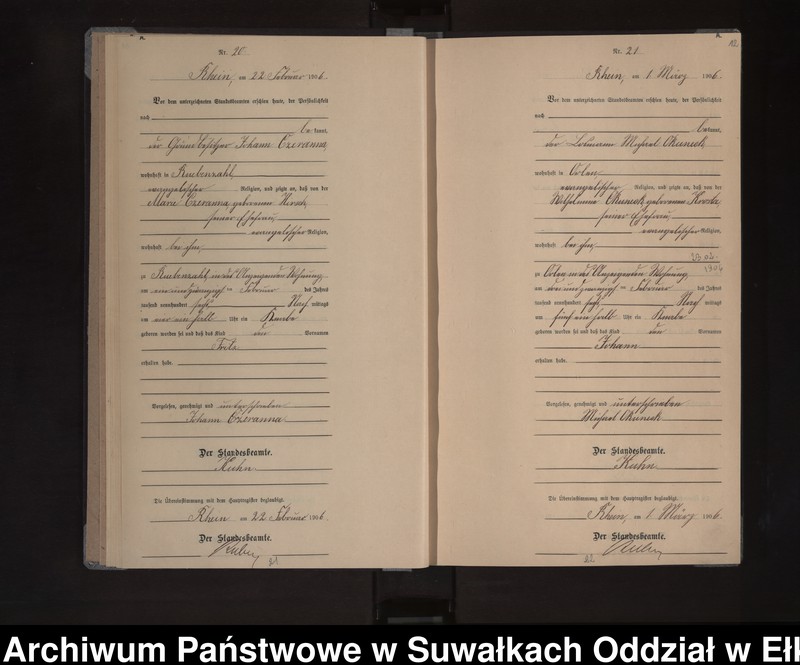 Nr. 20
Rhein, am 22 Februar 1906.
Vor dem unterzeichneten Standesbeamten erschien heute, der Persönlichkeit
nach
bekannt,
der Grundbesitzer Johann Czeranna,
wohnhaft in Ruebenzahl,
evangelischer Religion, und zeigte an, daß von der
Marie Czeranna geborenen
seiner Ehefrau,
evangelischer Religion,
wohnhaft bei ihm,
zu Ruebenzahl, in des Anzeigenden Wohnung,
am ein und zwanzigsten Februar des Jahres
tausend neunhundert sechs Nach mittags
um vier ein halb Uhr ein Knabe
geboren worden sei und daß das Kind den Vornamen
Fritz
erhalten habe.
Vorgelesen, genehmigt und unterschrieben
Johann Czeranna
Der Standesbeamte.
Kuhn.
Die Übereinstimmung mit dem Hauptregister beglaubigt.
Rhein am 22 Februar 1906.
Der Standesbeamte.
Kuhn
Nr. 21
Rhein, am 1 März 1906.
Vor dem unterzeichneten Standesbeamten erschien heute, der Persönlichkeit
nach
bekannt,
der Michael Okuneck,
wohnhaft in Orlen,
evangelischer Religion, und zeigte an, daß von der
Wilhelmine Okuneck, geborenen
seiner Ehefrau,
evangelischer Religion,
wohnhaft bei ihm,
zu Orlen, in des Anzeigenden Wohnung,
am und zwanzigsten Februar des Jahres
tausend neunhundert sechs Nach mittags
um fünf ein halb Uhr ein Knabe
geboren worden sei und daß das Kind den Vornamen
Johann
erhalten habe.
Vorgelesen, genehmigt und unterschrieben
Michael Okuneck
Der Standesbeamte.
Kuhn.
Die Übereinstimmung mit dem Hauptregister beglaubigt.
Rhein, am 1 März 1906.
Der Standesbeamte.
Kuhn
Archiwum Państwowe w Suwałkach Oddział w Ełk